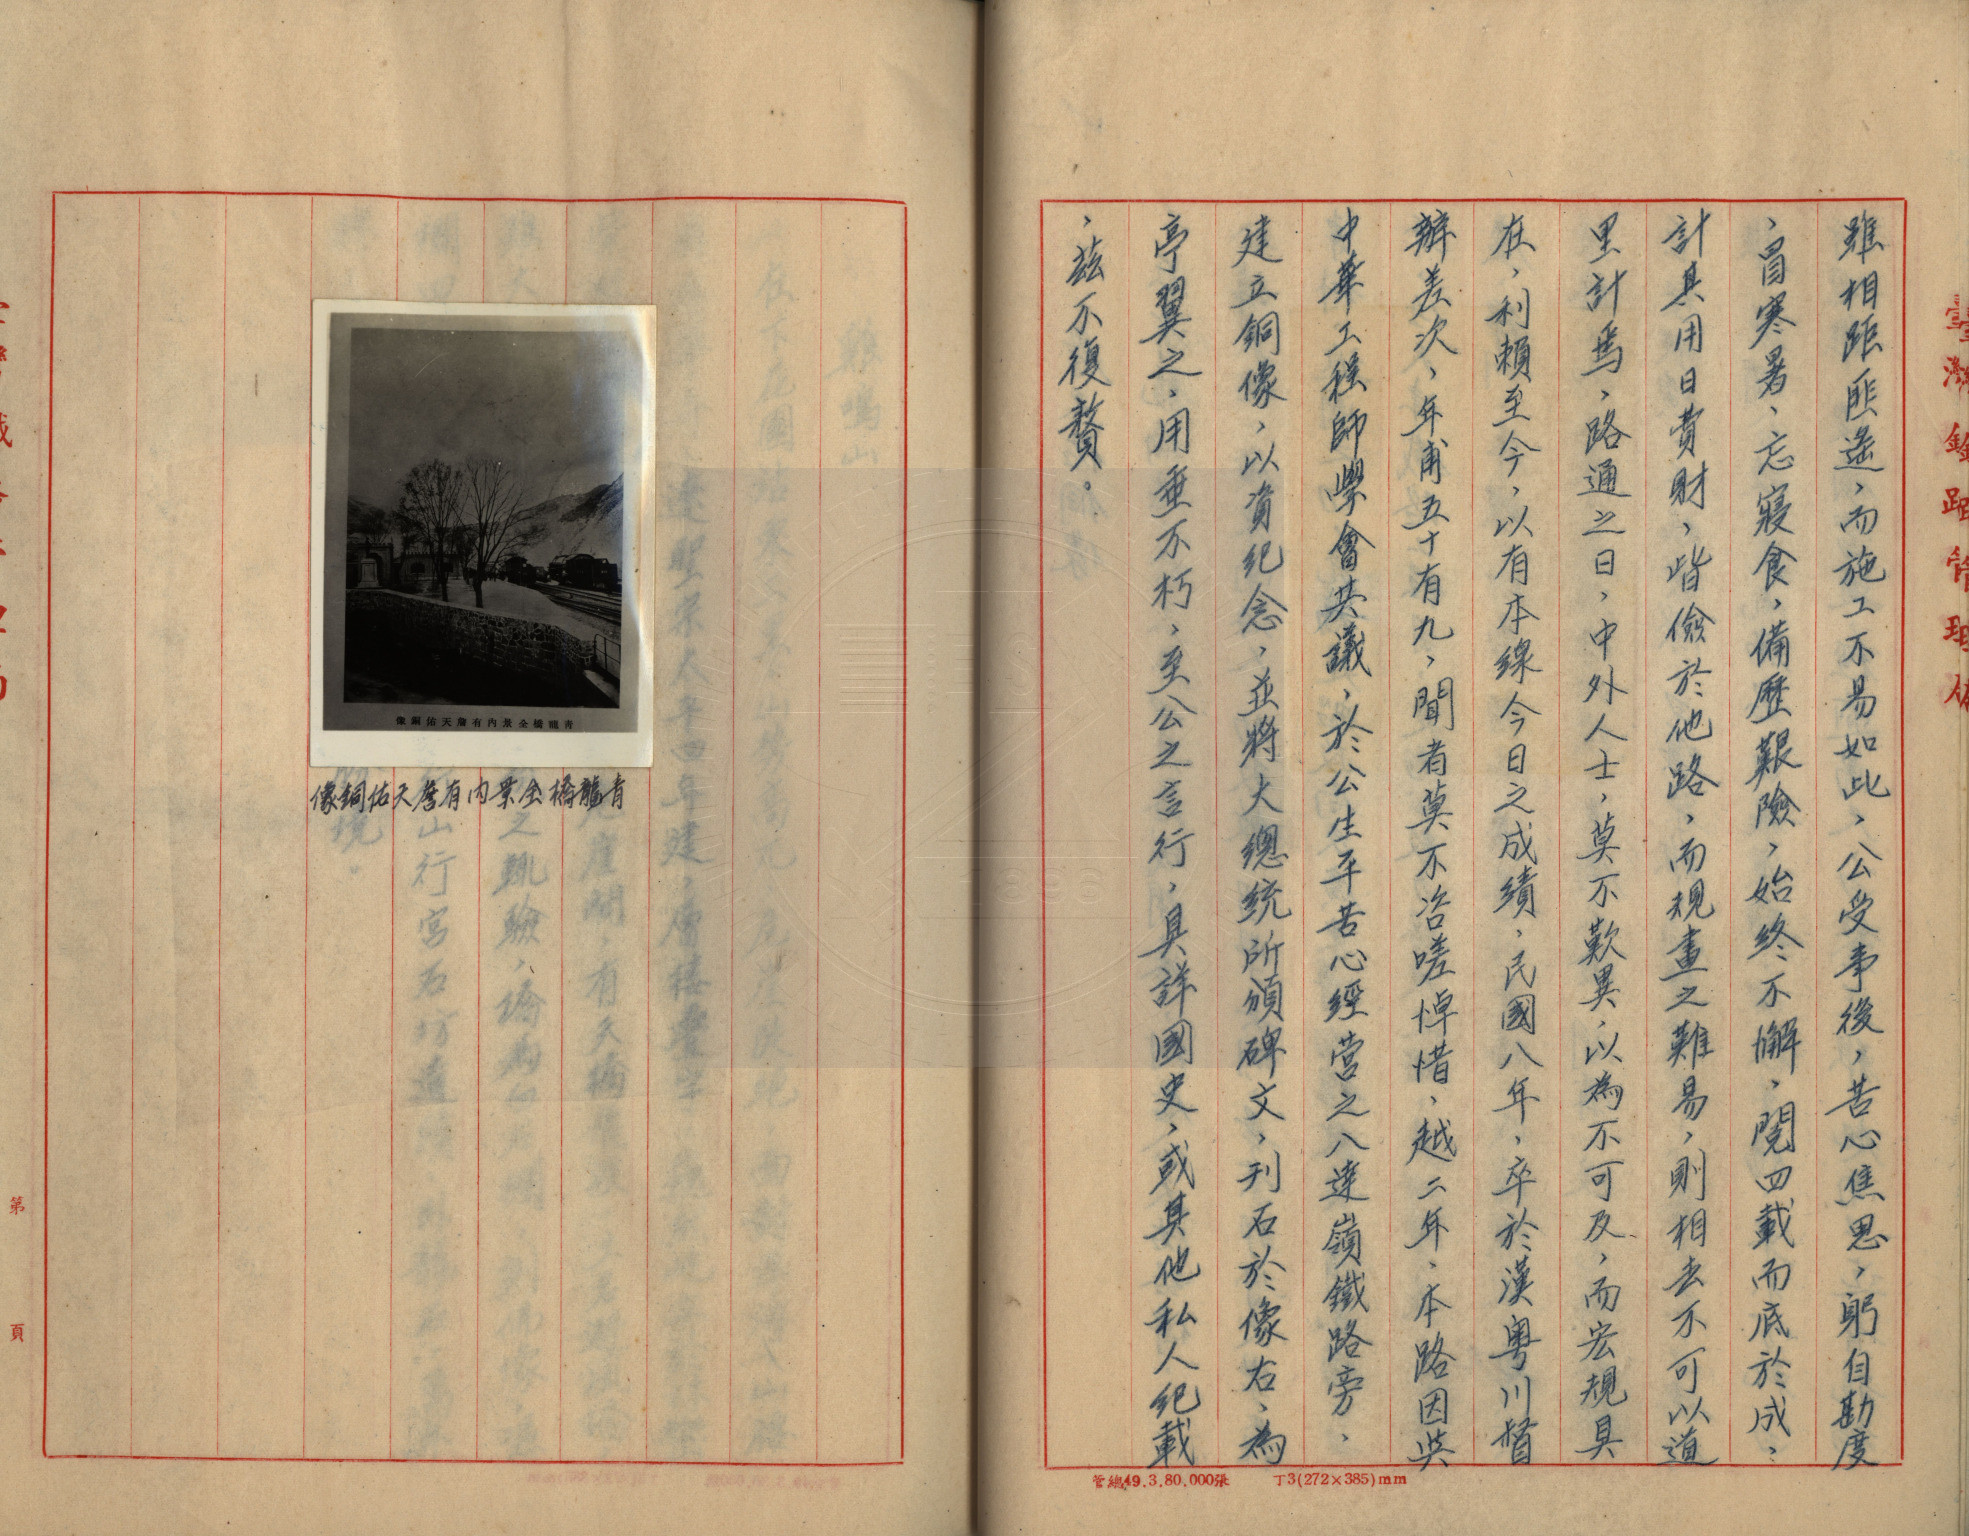 雖相距匪遥，而施工不易如此，公受事後，苦心焦思，躬自勘度
，冒寒暑，忘寢食，備歷艱險，始終不懈，閱四載而底於成，
計其用日費財，皆儉於他路，而規畫之難易，則相去不可以道
里計焉，路通之日，中外人士，莫不歎異，以為不可及，而宏規具
在，利賴至今，以有本線今日之成績，民國八年，卒於漢粵川督
辦差次，年甫五十有九，聞者莫不咨嗟悼惜，越二年，本路因與
中華工程師學會共議，於公生平苦心經營之八達嶺鐵路旁，
建立銅像，以資紀念，並將大總統所頒碑文，刋石於像右，為
亭翼之，用垂不朽，至公之言行，具詳國史，或其他私人紀載
，茲不復贅。
管總49.3.80,000張 丁3(272×385)mm
臺灣鐵路管理局
青龍橋全景內有詹天佑銅像
青龍橋全景內有詹天佑銅像
第 頁